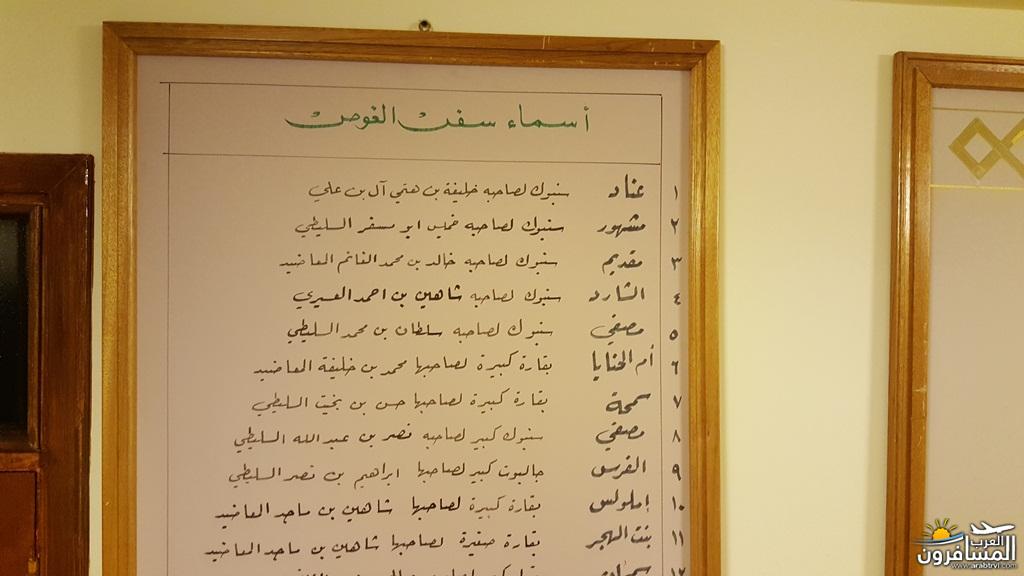 أسماء سفن الغوص
١ عناد سنبوك لصاحبه خليفة بن هتمي آل بن علي
٢ مشهور سنبوك لصاحبه خميس ابو مسفر السليطي
٣ مقديم سنبوك لصاحبه خالد بن محمد الغانم المعاضيد
٤ الشارد سنبوك لصاحبه شاهين بن احمد العسيري
٥ مصفي سنبوك لصاحبه سلطان بن محمد السليطي
٦ أم الحنايا بقارة كبيرة لصاحبها محمد بن خليفة المعاضيد
٧ سمحة بقارة كبيرة لصاحبها حسن بن بخيت السليطي
٨ مصفي سنبوك كبير لصاحبه نصر بن عبدالله السليطي
٩ الفرس جالبوت كبير لصاحبها ابراهيم بن نصر السليطي
١٠ املولس بقارة كبيرة لصاحبها شاهين بن ماجد المعاضيد
١١ بنت الهجر بقارة صغيرة لصاحبها شاهين بن ماجد المعاضيد
١٢
العرب المسافرون
www.arabtrvl.com